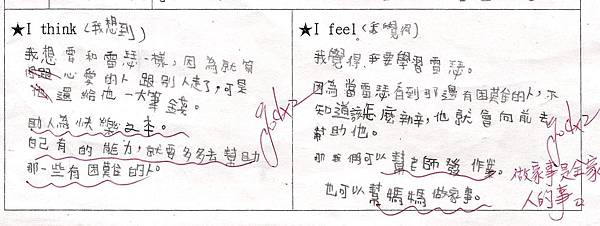 ★I think (我想到)
我想要和雪瑟一樣，因為就算
心愛的人跟別人走了，可是
他還給他一大筆錢。
助人為快樂之本。
自己有的能力，就要多多去幫助
那一些有困難的人。
goodx2
★I feel (我覺得)
我覺得，我要學習雪瑟。
因為當雪瑟看到那邊有困難的人，不
知道該怎麼辦，他就會向前去
幫助他。
那我們可以幫老師發作業。
也可以幫媽媽做家事。
goodx2
做家事是全家
人的事。